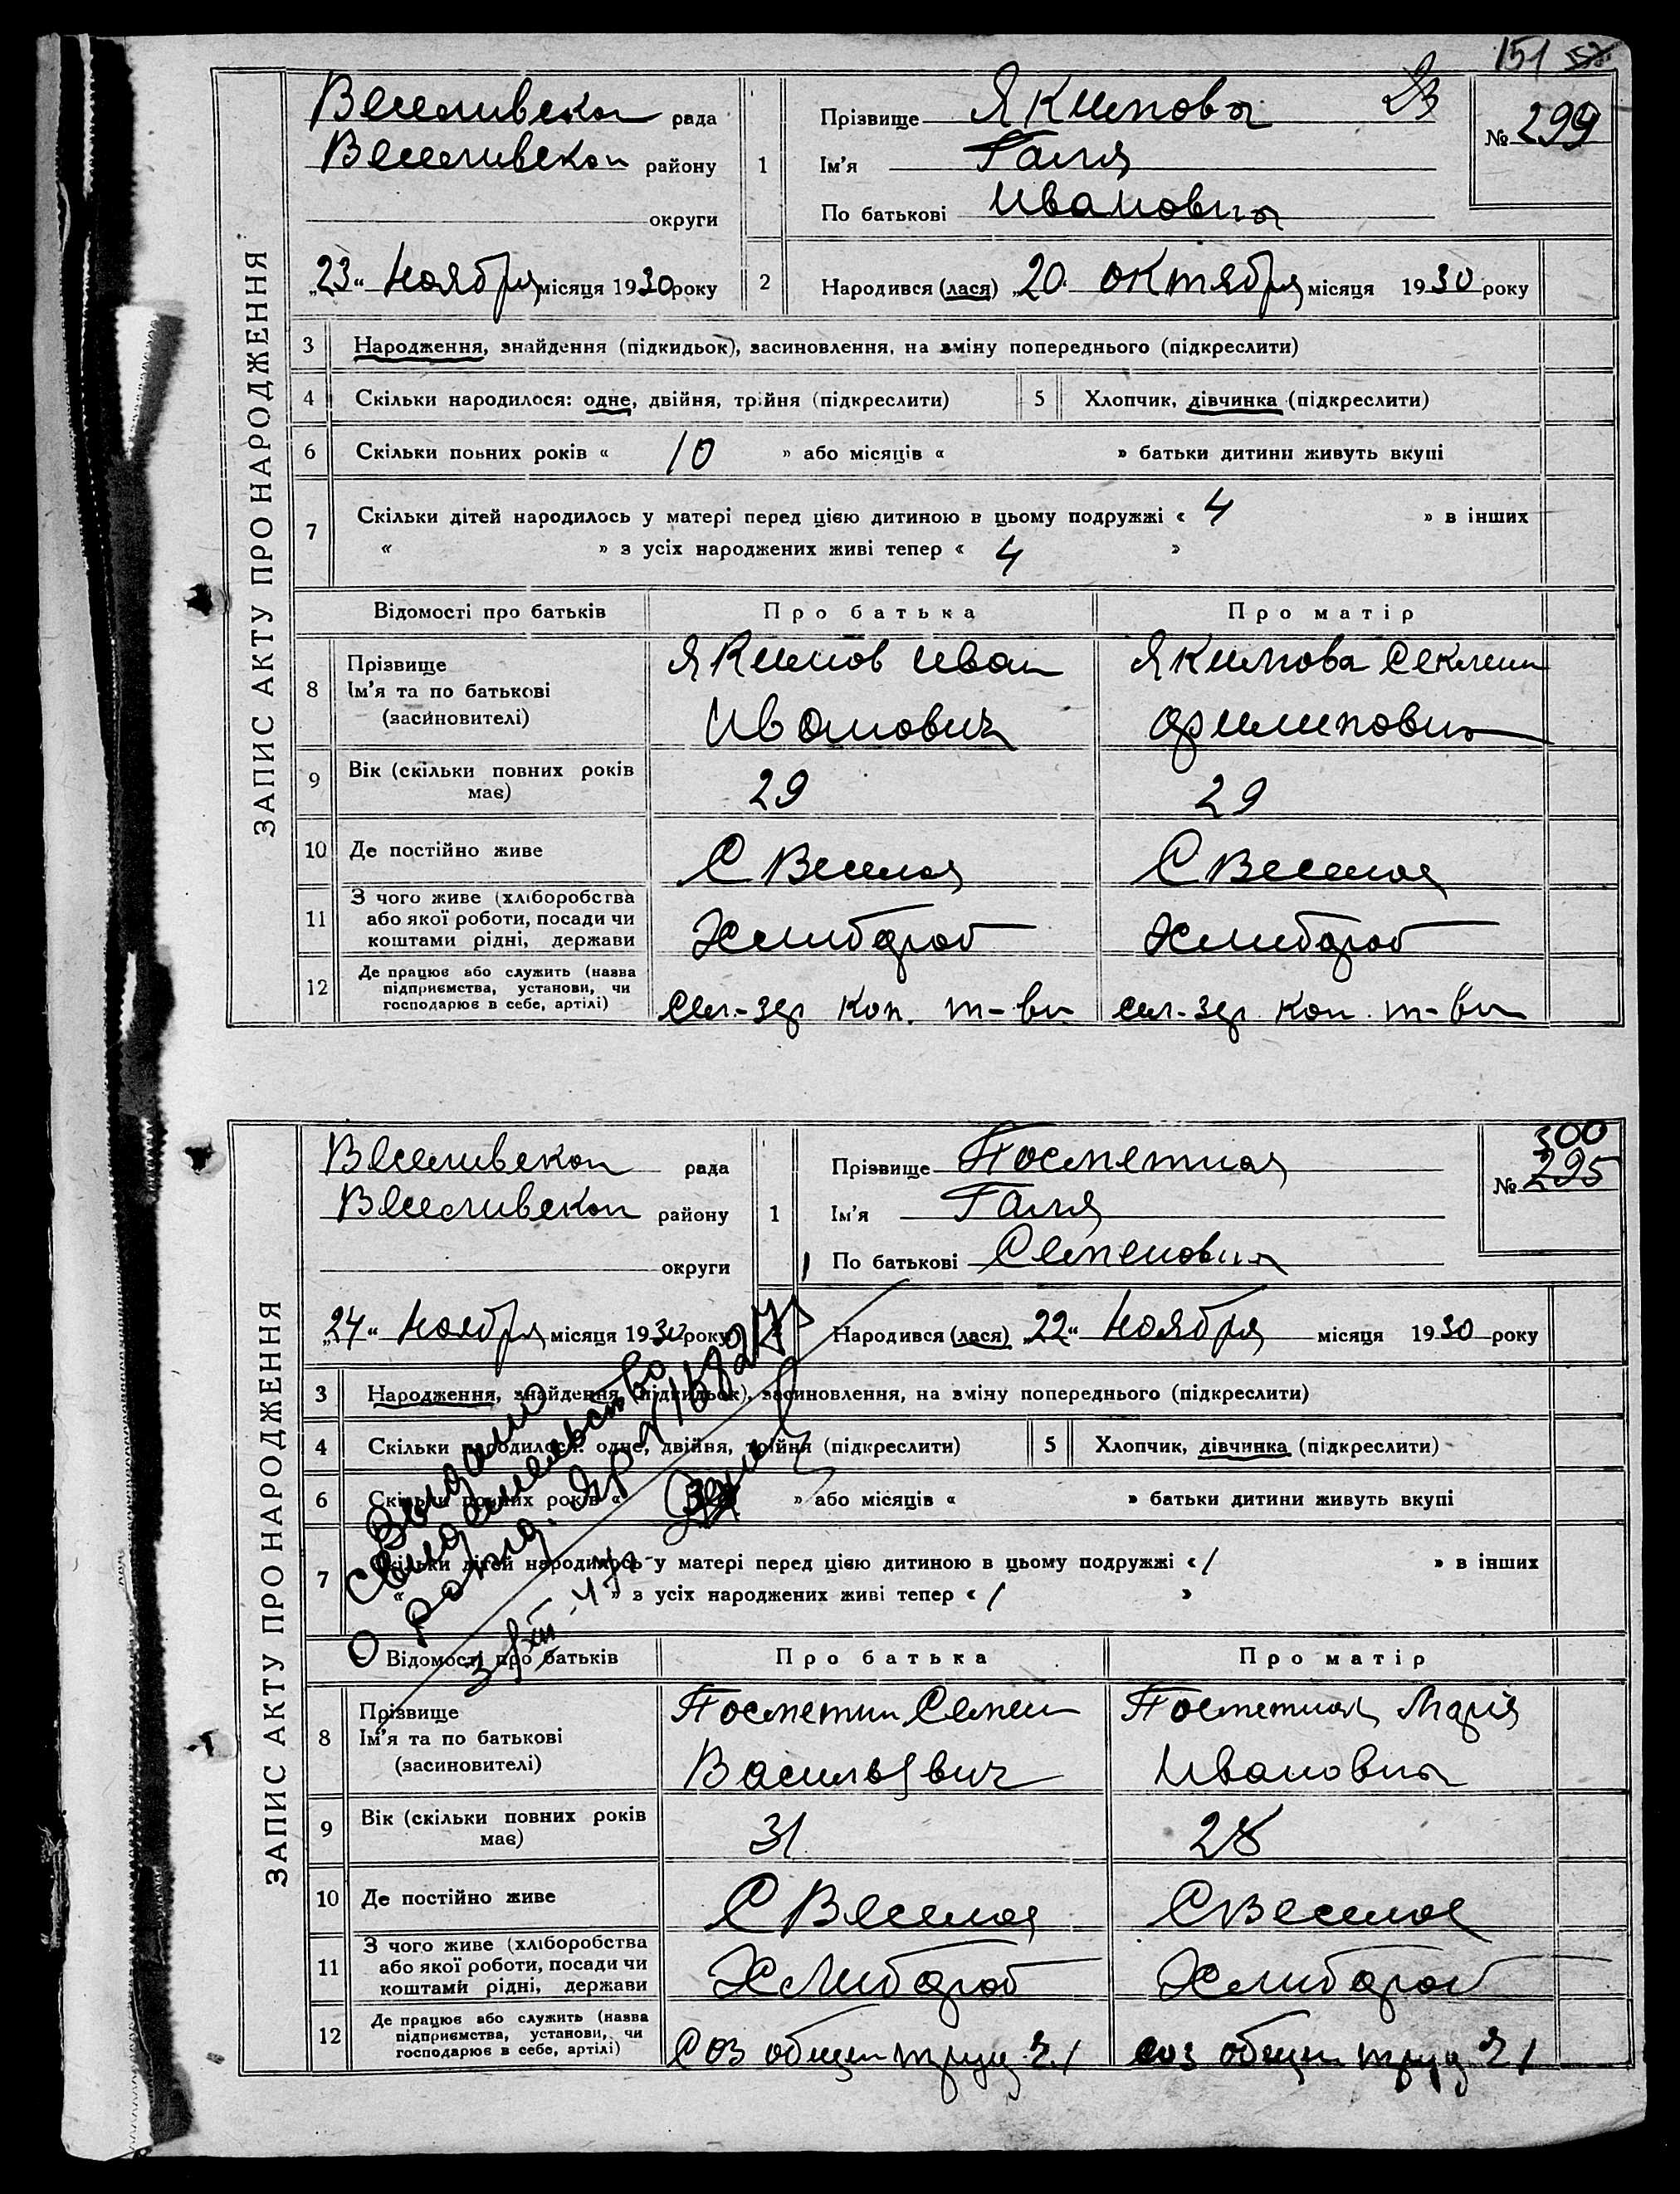 151
ЗАПИС АКТУ ПРО НАРОДЖЕННЯ
Веселивскои рада
Веселивскои району
округи
„23“ Ноября місяця 1930 року
1
Прізвище Якимова 23
Ім'я Галя
По батькові Ивановна
№ 299
2 Народився (лася) „20“ октября місяця 1930 року
3 Народження, знайдення (підкидьок), засиновлення, на зміну попереднього (підкреслити)
4 Скільки народилося: одне, двійня, трійня (підкреслити) 5 Хлопчик, дівчинка (підкреслити)
6 Скільки повних років « 10 » або місяців « » батьки дитини живуть вкупі
7 Скільки дітей народилось у матері перед цією дитиною в цьому подружжі « 4 » в інших
« » з усіх народжених живі тепер « 4 »
Відомості про батьків Про батька Про матір
8 Прізвище
Ім'я та по батькові
(засиновителі)
Якимов Иван
Иванович
Якимова
Филиповна
9 Вік (скільки повних років має) 29 29
10 Де постійно живе С Веселое С Веселое
11 З чого живе (хліборобства
або якої роботи, посади чи
коштами рідні, держави
Хлибороб Хлибороб
12 Де працює або служить (назва
підприємства, установи, чи
господарює в себе, артілі)
коп. т-ви коп. т-ви
ЗАПИС АКТУ ПРО НАРОДЖЕННЯ
Веселивскои рада
Веселивскои району
округи
„24“ Ноября місяця 1930 року
1
Прізвище Посметная
Ім'я Галя
По батькові Семеновна
300
№ 295
Народився (лася) „22“ Ноября місяця 1930 року
3 Народження, знайдення (підкидьок), засиновлення, на зміну попереднього (підкреслити)
4 Скільки народилося: одне, двійня, трійня (підкреслити) 5 Хлопчик, дівчинка (підкреслити)
6 Скільки повних років « » або місяців « » батьки дитини живуть вкупі
7 Скільки дітей народилось у матері перед цією дитиною в цьому подружжі « 1 » в інших
« » з усіх народжених живі тепер « 1 »
Выдано
свидетельство
о рожд.
Відомості про батьків Про батька Про матір
8 Прізвище
Ім'я та по батькові
(засиновителі)
Посметни Семен
Васильевич
Посметная Марія
Ивановна
9 Вік (скільки повних років має) 31 28
10 Де постійно живе С Веселое С Веселое
11 З чого живе (хліборобства
або якої роботи, посади чи
коштами рідні, держави
Хлибороб Хлибороб
12 Де працює або служить (назва
підприємства, установи, чи
господарює в себе, артілі)
Соз соз